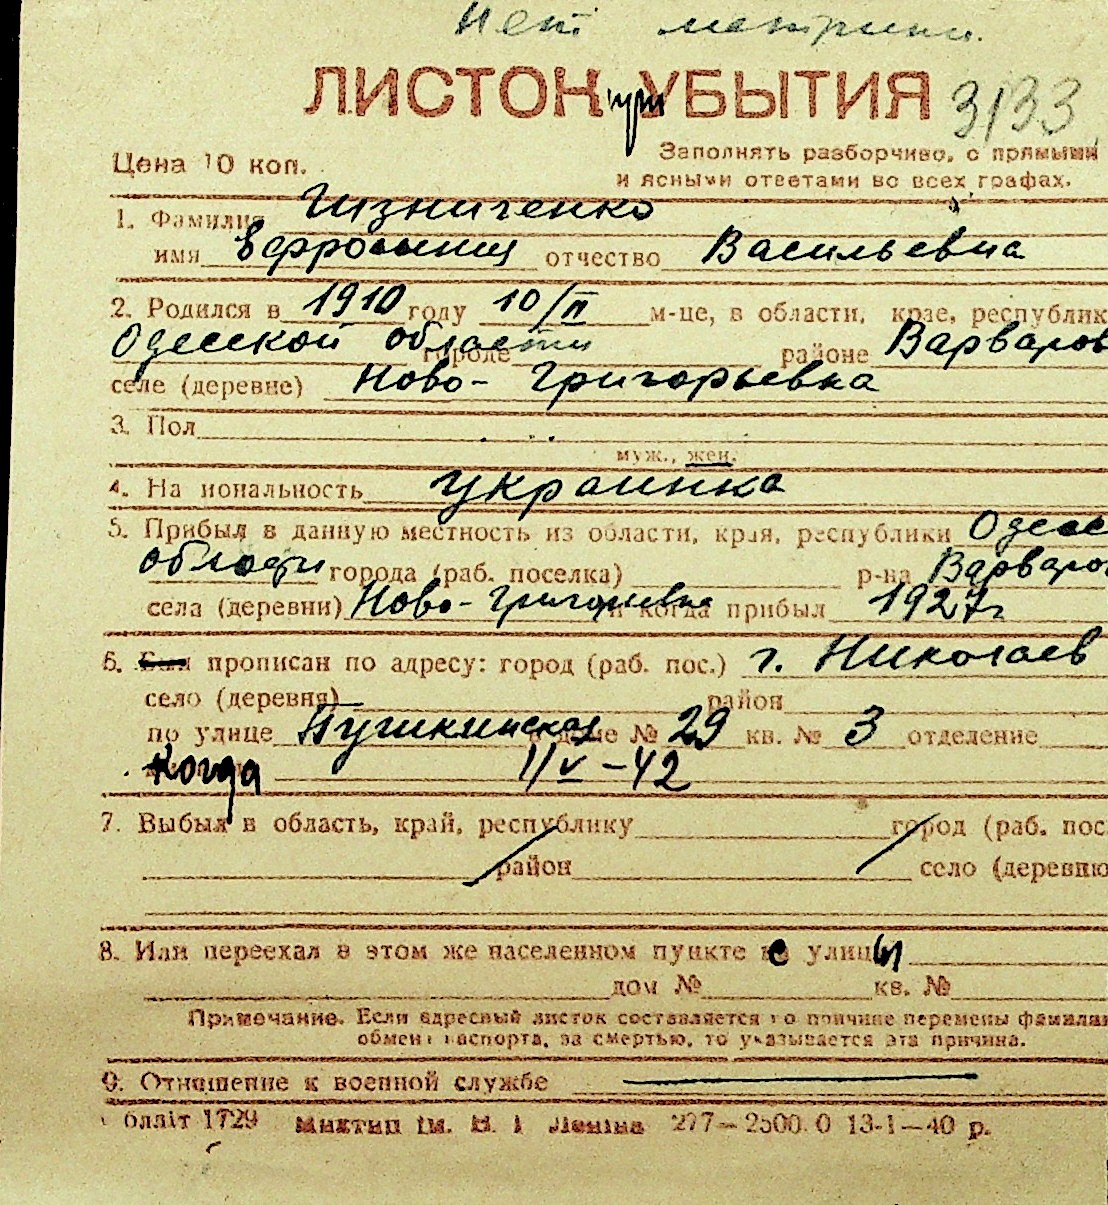 Нет метрики.
ЛИСТОК при УБЫТИЯ 3133
Заполнять разборчиво, с прямыми
Цена 10 коп.
и ясными ответами во всех графах.
1. Фамилия Гизниченко
имя Ефросиния отчество Васильевна
2. Родился в 1910 году 10/II м-це, в области, крае, республик
Одесской области городе районе Варваров
селе (деревне) Ново-Григорьевка
3. Пол
муж., жен.
4. На иональность украинка
5. Прибыл в данную местность из области, края, республики Одесс
области города (раб. поселка) р-на Варваров
села (деревни) Ново-Григорьевка и когда прибыл 1927г
6. Был прописан по адресу: город (раб. пос.) г. Николаев
село (деревня) район
по улице Пушкинская в доме № 29 кв. № 3 отделение
Когда 1/V-42
7. Выбыл в область, край, республику город (раб. пос.
район село (деревню
8. Или переехал в этом же населенном пункте с улицы
дом № кв. №
Примечание. Если адресный листок составляется по причине перемены фамилии
обмен паспорта, за смертью, то указывается эта причина.
9. Отношение к военной службе
бллiт 1729 Миктип iм. В. I Ленiна 277—2500.0 13-1—40 р.